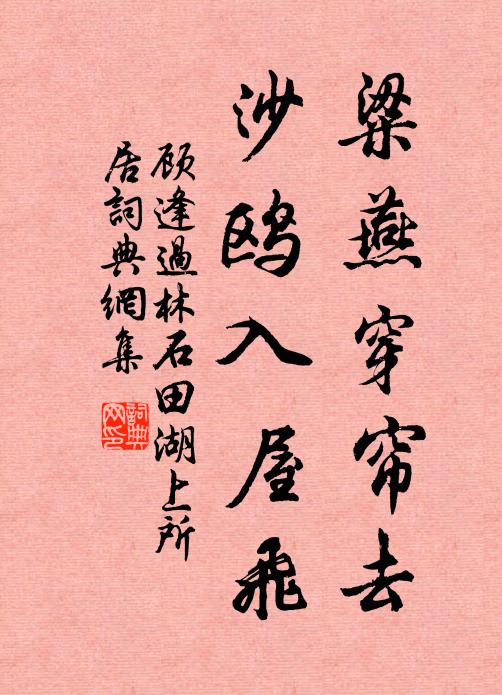 梁燕穿帘去
沙鸥入屋飞
顾逢过林石田湖上所
居詞典網集
詞典
网印